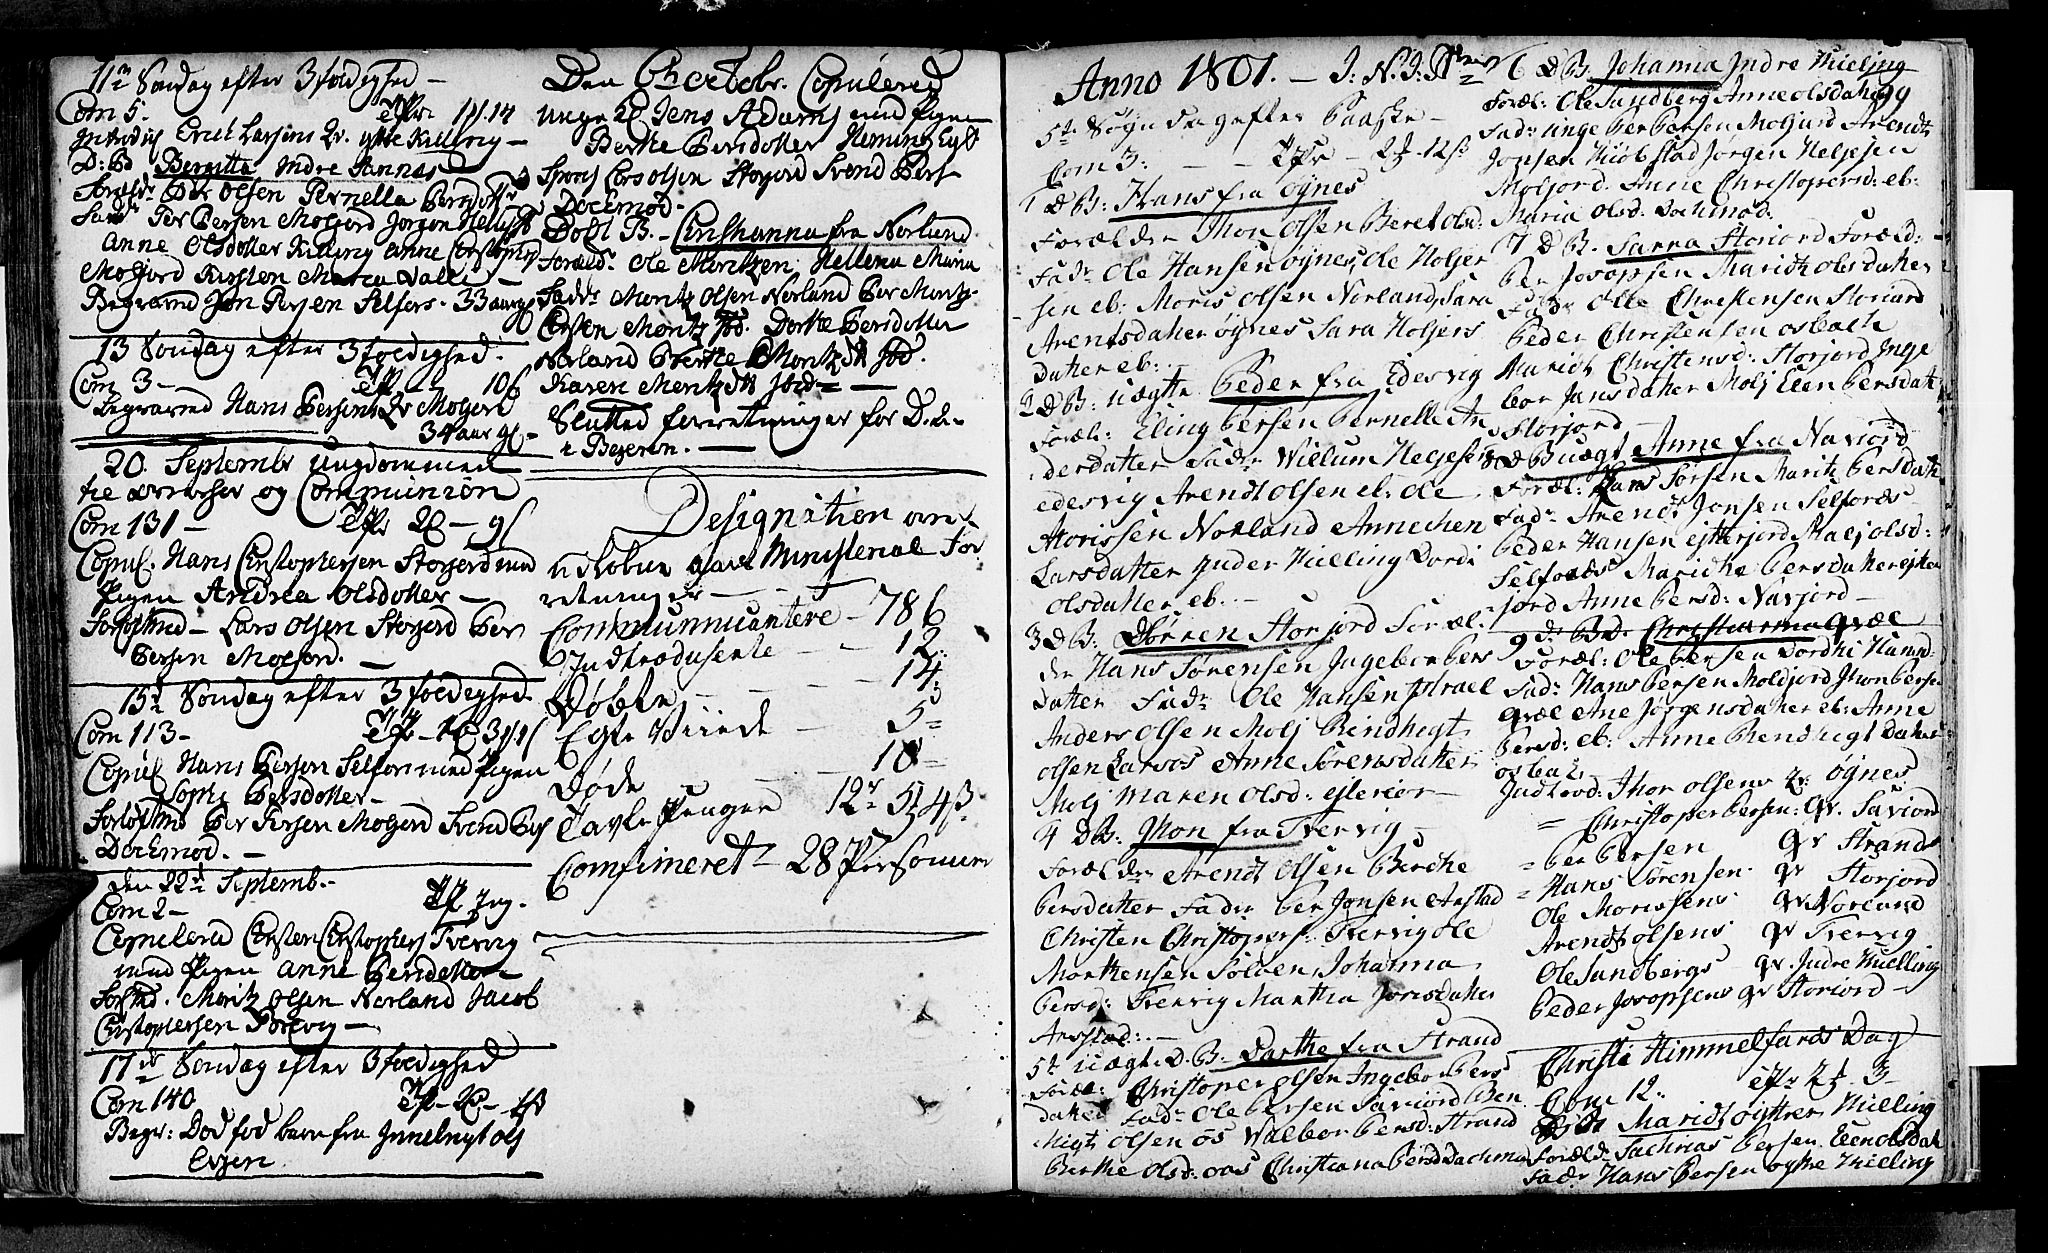 11te Søndag efter 3foldighed –
Com 5. Tfr 1[.14
Introduc Erich Larsens Qv. yttre Killing –
D: Bd Bergitta Indre Aannæs
Foræld: Per Olsen Pernella Persdotter
Fadd: Per Persen Moljord Jørgen
Anne Olsdotter Killing Anne Christophers
Moljord Kirsten Maria Valle –
Begraved Jon Persen Selfors 33 aar gl
13 Søndag efter 3foldighed.
Com 3 – Tfr – 10ß
Begraved Hans Persens Qv Moljord
34 aar gl –
20. Septembr Ungdommen
og Communion
Com 131 –
Copul. Hans Christophersen Storjord med
Pigen Andrea Olsdotter –
Forlofmd – Lars Olsen Storjord Per
Persen Moljord. –
15de Søndag efter 3foldeghed.
Com 113 –
Copul Hans Persen Selfors med Pigen
Sophi Persdotter –
Forlofmd Per Persen Moljord Svend Pers
Dochmod. –
den 22de Septemb. –
Com 2 –
Copulered Christen Christophers Tvervig
med Pigen Anne Persdotter
Forlofmd. Moritz Olsen Norland Jacob
Christophersen Tvervig –
17de Søndag efter 3foldeghed
Com 140
Begr: Død fød barn fra Inner
Evjen
Den 6 Octobr. Copulered
unge K. Jens Adams med Pigen
Berthe Persdotter Hemingjgt
Spons Lars Olsen Storjord Svend Pers
Dochmod –
Døbt B. – Christianna fra Norland
Foræld: Ole Moritzen Hellena Maria
Fadd: Moritz Olsen Norland Per Moritz
Persen Dorthe Persdotter
Norland Berthe Moritzdtr
Karen Moritzdtr
Slutted forretninger for D.
Bejeron. –
Designation over
Ministerial For
retninger –
Communnicantere – 786
Indtroduserte – – 12.
Døbte – – – – 14.
Egte Viede – 5
Døde – 18
Tavle Penger 12r 5[ 4ß
Comfimeret – 28 Personer
Anno 1801. – I: N: I: 
5te Søgndag efter Paaske –
Com 3: – – Tfr – 2[ 12ß
1 D B: Hans fra Øynes
Forælder Thon Olsen Beret Olsd:
Fadr Ole Hansen Øynes, Ole Holjer
sen eb: Moris Olsen Norland, Sara
Arentsdatter Øynes Sara Holjers
datter eb: –
2 D B: uægte Peder fra Edesvig
Foræl: Eling Persen Pernelle An
dersdatter Fadr Wielum Helgesen
Edesvig Arendt Olsen eb: Ole
Morissen Norland Annechen
Larsdatter Inder Killing Dordi
Olsdatter eb: –
3 D B: Dorren Storjord Foræl:
der Hans Sørensen Ingebor Pers
datter Fadr Ole Hansen Israel
Anders Olsen Molj Bendhegt
Olsen Larsos Anne Sørensdatter
Molj Maren Olsd: Ejterior –
4 D B: Jhon fra Tvervig –
Forælder Arendt Olsen Berthe
Persdatter Fader Per Jonsen Arstad
Christen Christopers: Tvervig Ole
Morthensen Solven Johanna
Persd: Tvervig Martha Jonsdatter
Arstad: –
5te uægt: D: B: Dorthe fra Strand
Foræl: Christoper Olsen Ingebor Pers
datter Fadr Ole Persen Saviord Ben
higt Olsen Os Walbor Persd: Strand
Berthe Olsd: Oas Christiana Persd Dachmo
99
6 D B. Johanna Indre Kieling
Foræl: Ole Sundberg Anne Olsdatter
Fadr: Unge Per Persen Moljord Arendt
Jonsen Kiøbstad Jørgen Helgesen
Moljord: Anne Christopersd: eb:
Maria Olsd: Dochmod:
7 D B. Sanna Storiord Foræld:
Per Josopsen Maridt Olsdatter
Fadr Olle Christensen Storiord
Peder Christensen Osbach
Maridt Christensd: Storjord Inge
bor Jansdatter Molj Elen Persdatt
Storjord –
8 D B uægt Anne fra Naviord
Foræl: Hans Sørsen Marit Persdatt
Fadr Arendt Jonsen Selfors –
Peder Hansen Ejtterjord Malj Olsd:
Selfors Maridthe Persdatter Ejter
jord Anne Persd: Navjord –
9 d: B d. Christianna Qvæl
Foræl: Ole Persen Dordhi Hansd:
Fadr: Hans Persen Moldjord Jhon Perse
Qvæl Ane Jørgensdatter eb: Anne
Persd: eb: Anne Bendhegt Datter
Osbak
Indtrod: Thor Olsens Qv Øgnes
= Christoper Persen: Qv. Saviord
= Per Persen Qv Strand
= Hans Sørensen Qv Storjord
Ole Morissens Qv Norland
Arendt Olsens Qv Tvervig
Ole Sundbergs – Qv. Indre Kielling
Peder Josopsens Qv Storiord –
Christi Himmelfards Dag
Com 12: Tfr 2[ 3
D B Maridt Øytter Killing
Foræld Sachrias Persen Elen Olsdatt
Fadr Hans Persen Øytre Kieling